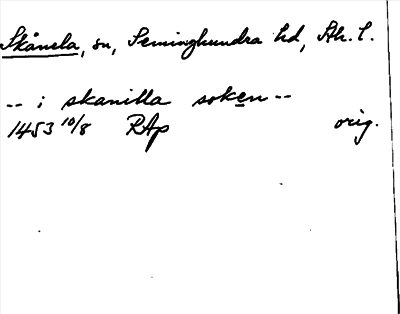 Skånela, sn, Seminghundra hd, Sth. l.
-- i skanilla soken --
1453 10/8 RAp orig.